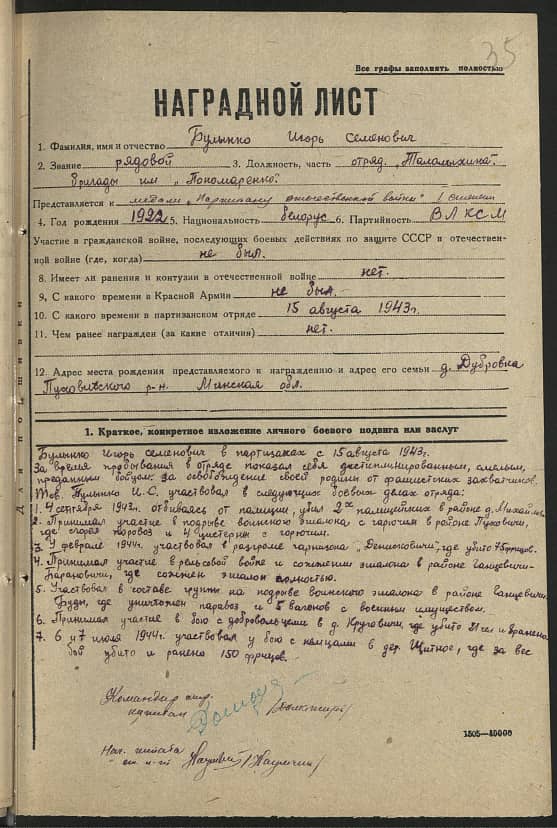 35
Все графы заполнять полностью
НАГРАДНОЙ ЛИСТ
1. Фамилия, имя и отчество Булынко Игорь Семенович
2. Звание рядовой 3. Должность, часть отряд „Таламыхина"
бригады им „Пономаренко".
Представляется к медали „Партизану отечественной войны" I степени
4. Год рождения 1922 5. Национальность белорус 6. Партийность ВЛКСМ
Участие в гражданской войне, последующих боевых действиях по защите СССР и отечествен-
ной войне (где, когда) не был.
8. Имеет ли ранения и контузии в отечественной войне нет.
9. С какого времени в Красной Армии не был.
10. С какого времени в партизанском отряде 15 августа 1943г.
11. Чем ранее награжден (за какие отличия) нет.
12. Адрес места рождения представляемого к награждению и адрес его семьи д. Дубровка
Пуховичского р-н. Минская обл.
Для подшивки
1. Краткое, конкретное изложение личного боевого подвига или заслуг
Булынко Игорь Семенович в партизанах с 15 августа 1943г.
За время пробывания в отряде показал себя дисциплинированным, смелым,
преданным бойцом: за освобождение своей родины от фашистских захватчиков.
Тов. Булынко И.С. участвовал в следующих боевых делах отряда:
1. 4 сентября 1943г. отбиваясь от полиции, убил 2х полицейских в районе д.
2. Принимал участие в подрыве воинского эшалона с горючим в районе Пуховичи,
где сгорел поровоз и 4 цистерны с горючим.
3. У феврале 1944г. участвовал в разгроме гарнизона „Денисковичи", где убито 75 фрицов.
4. Принимал участие в рельсовой войне и сожжении эшалона в районе Ганцевичи-
Барановичи, где сожжен эшалон полностью.
5. Участвовал в составе группы на подрыве воинского эшалона в районе Ганцевичи
Буды, где уничтожен паравоз и 5 вагонов с военным имуществом.
6. Принимал участие в бою с добровольцами в д. Круговичи, где убито 21 чел и
7. 6 и 7 июля 1944г. участвовал у бою с немцами в дер. Щитное, где за весь
бой убито и ранено 150 фрицов.
Командир отр.
капитан
Нач. штаба
1505—40000